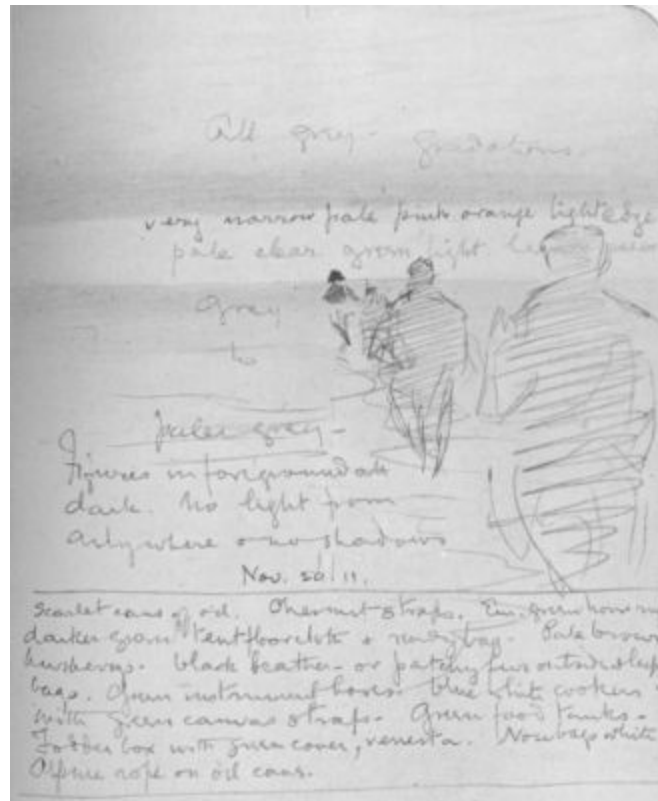 All grey - gradations.
very narrow pale pink orange light edge
pale clear green light
Grey
to
paler grey -
Figures in foreground all
dark. No light from
anywhere & no shadows
Nov. 20/11.
Scarlet cans of oil. Chestnut straps.
darker green tent floorcloth & ready bag. Pale brown
black leather - or patchy fur outside sleep
bags. Green instrument boxes. blue white cookers
with green canvas straps. Green food tanks -
Fodder box with green cover, venesta. Nosebags white
Alpine rope on oil cans.